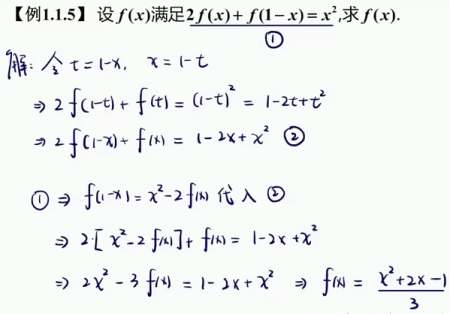 【例1.1.5】 设f(x)满足2f(x)+f(1-x)=x²,求f(x).
①
解: 令 t=1-x, x=1-t
⇒ 2f(1-t)+f(t)=(1-t)²=1-2t+t²
⇒ 2f(1-x)+f(x)=1-2x+x² ②
① ⇒ f(1-x)=x²-2f(x) 代入 ②
⇒ 2·[x²-2f(x)]+f(x)=1-2x+x²
⇒ 2x²-3f(x)=1-2x+x² ⇒ f(x)=(x²+2x-1)/3